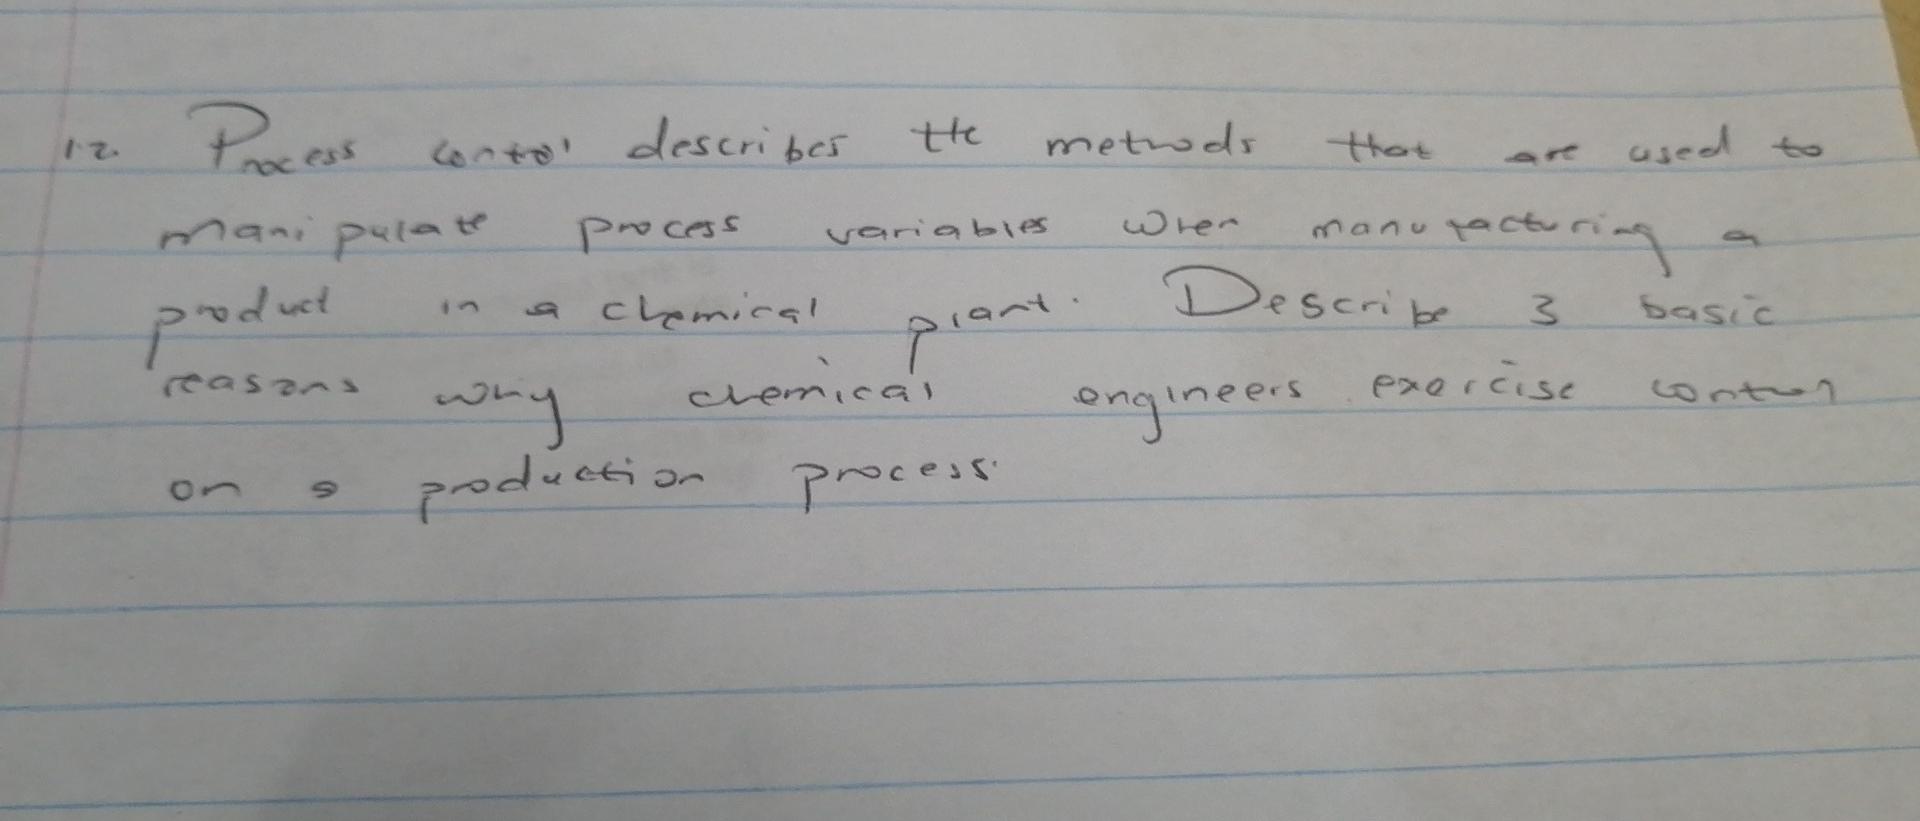 1.2. Process control describes the methods that are used to
manipulate process variables when manufacturing a
product in a chemical plant. Describe 3 basic
reasons why chemical engineers exercise control
on a production process.